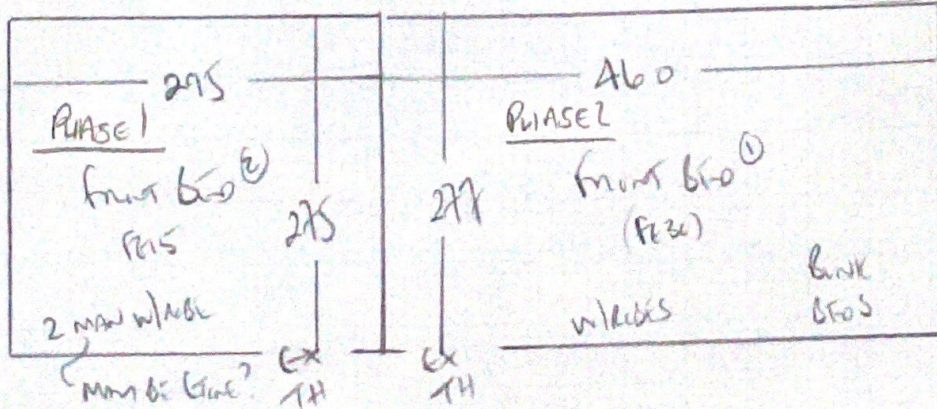 295
PHASE 1
FRONT BED ②
FE15
275
2 MAN W/ROBE
MAY BE GONE?
EX
TH
460
PHASE 2
FRONT BED ①
277
W/ROBES
BUNK
BEDS
EX
TH